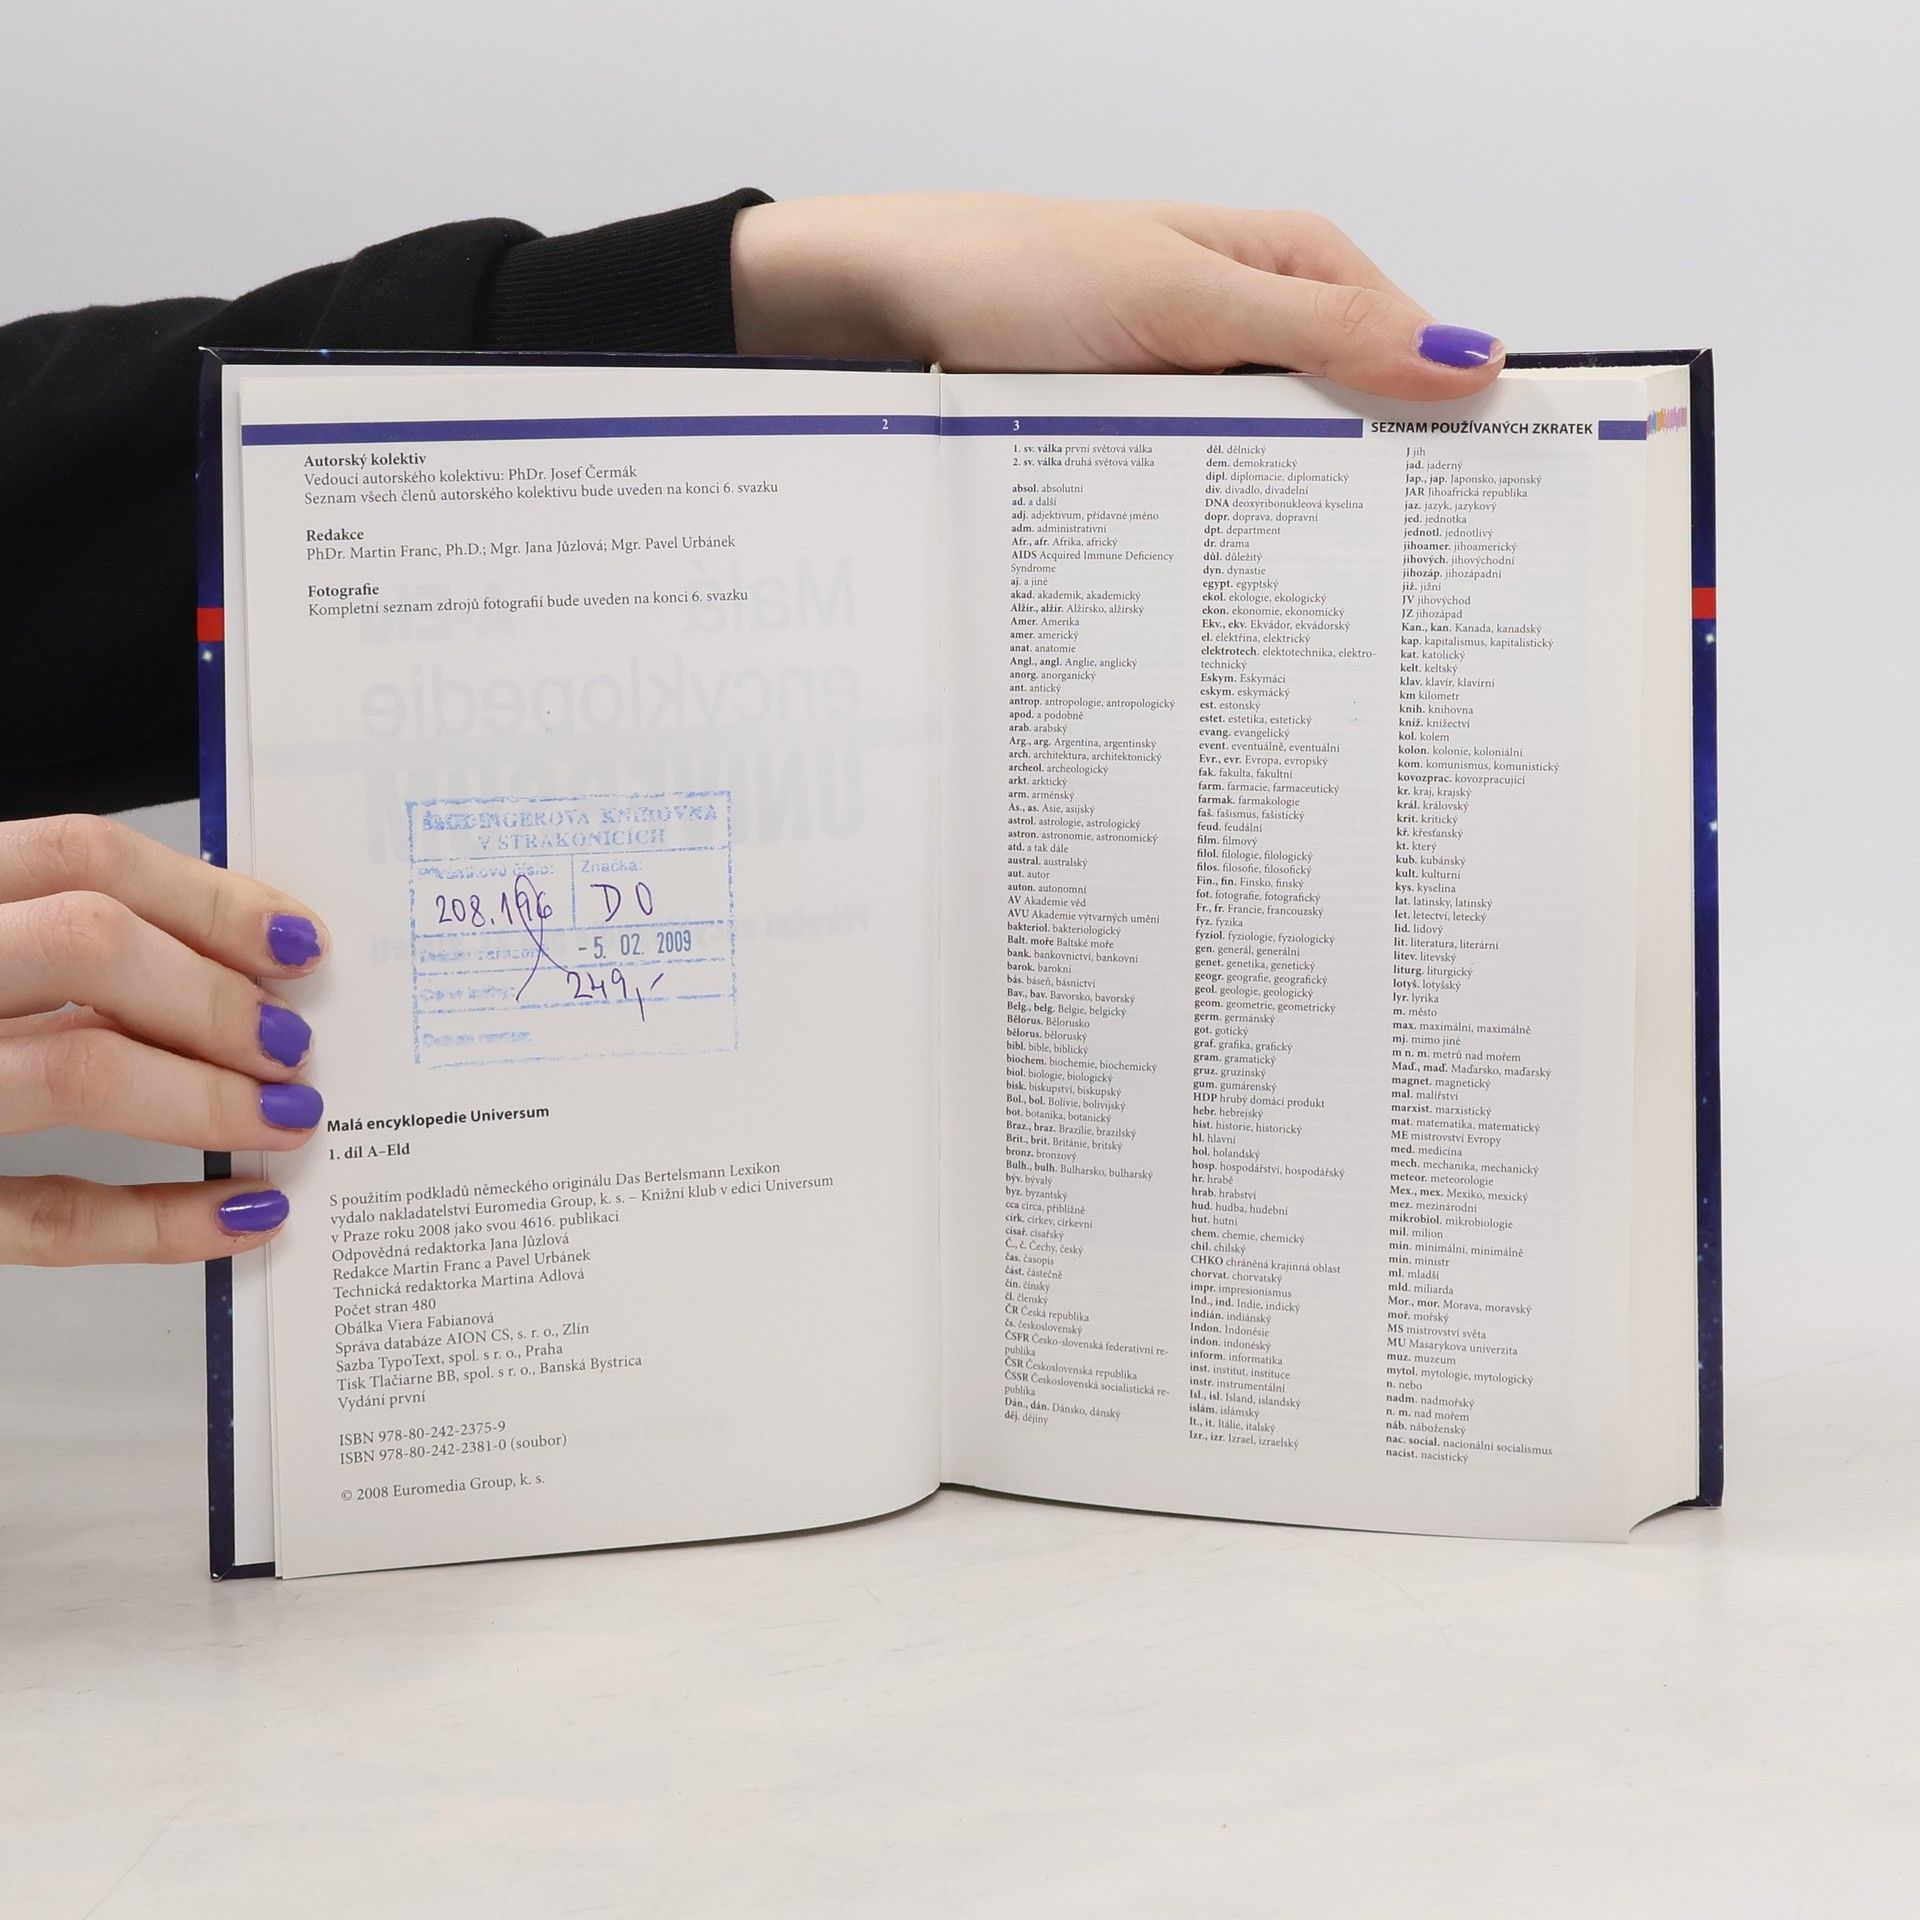 2
Autorský kolektiv
Vedoucí autorského kolektivu: PhDr. Josef Čermák
Seznam všech členů autorského kolektivu bude uveden na konci 6. svazku
Redakce
PhDr. Martin Franc, Ph.D.; Mgr. Jana Jůzlová; Mgr. Pavel Urbánek
Fotografie
Kompletní seznam zdrojů fotografií bude uveden na konci 6. svazku
KNIHOVNA
V STRAKONICÍCH
číslo: Značka:
208.196 DO
-5. 02. 2009
249,-
Malá encyklopedie Universum
1. díl A–Eld
S použitím podkladů německého originálu Das Bertelsmann Lexikon
vydalo nakladatelství Euromedia Group, k. s. – Knižní klub v edici Universum
v Praze roku 2008 jako svou 4616. publikaci
Odpovědná redaktorka Jana Jůzlová
Redakce Martin Franc a Pavel Urbánek
Technická redaktorka Martina Adlová
Počet stran 480
Obálka Viera Fabianová
Správa databáze AION CS, s. r. o., Zlín
Sazba TypoText, spol. s r. o., Praha
Tisk Tlačiarne BB, spol. s r. o., Banská Bystrica
Vydání první
ISBN 978-80-242-2375-9
ISBN 978-80-242-2381-0 (soubor)
© 2008 Euromedia Group, k. s.
3
SEZNAM POUŽÍVANÝCH ZKRATEK
1. sv. válka první světová válka
2. sv. válka druhá světová válka
absol. absolutní
ad. a další
adj. adjektivum, přídavné jméno
adm. administrativní
Afr., afr. Afrika, africký
AIDS Acquired Immune Deficiency
Syndrome
aj. a jiné
akad. akademik, akademický
Alžír., alžír. Alžírsko, alžírský
Amer. Amerika
amer. americký
anat. anatomie
Angl., angl. Anglie, anglický
anorg. anorganický
ant. antický
antrop. antropologie, antropologický
apod. a podobně
arab. arabský
Arg., arg. Argentina, argentinský
arch. architektura, architektonický
archeol. archeologický
arkt. arktický
arm. arménský
As., as. Asie, asijský
astrol. astrologie, astrologický
astron. astronomie, astronomický
atd. a tak dále
austral. australský
aut. autor
auton. autonomní
AV Akademie věd
AVU Akademie výtvarných umění
bakteriol. bakteriologický
Balt. moře Baltské moře
bank. bankovnictví, bankovní
barok. barokní
bás. báseň, básnictví
Bav., bav. Bavorsko, bavorský
Belg., belg. Belgie, belgický
Bělorus. Bělorusko
bělorus. běloruský
bibl. bible, biblický
biochem. biochemie, biochemický
biol. biologie, biologický
bisk. biskupství, biskupský
Bol., bol. Bolívie, bolivijský
bot. botanika, botanický
Braz., braz. Brazílie, brazilský
Brit., brit. Británie, britský
bronz. bronzový
Bulh., bulh. Bulharsko, bulharský
býv. bývalý
byz. byzantský
cca circa, přibližně
círk. církev, církevní
císař. císařský
Č., č. Čechy, český
čas. časopis
část. částečně
čín. čínský
čl. členský
ČR Česká republika
čs. československý
ČSFR Česko-slovenská federativní re-
publika
ČSR Československá republika
ČSSR Československá socialistická re-
publika
Dán., dán. Dánsko, dánský
děj. dějiny
děl. dělnický
dem. demokratický
dipl. diplomacie, diplomatický
div. divadlo, divadelní
DNA deoxyribonukleová kyselina
dopr. doprava, dopravní
dpt. department
dr. drama
důl. důležitý
dyn. dynastie
egypt. egyptský
ekol. ekologie, ekologický
ekon. ekonomie, ekonomický
Ekv., ekv. Ekvádor, ekvádorský
el. elektřina, elektrický
elektrotech. elektotechnika, elektro-
technický
Eskym. Eskymáci
eskym. eskymácký
est. estonský
estet. estetika, estetický
evang. evangelický
event. eventuálně, eventuální
Evr., evr. Evropa, evropský
fak. fakulta, fakultní
farm. farmacie, farmaceutický
farmak. farmakologie
faš. fašismus, fašistický
feud. feudální
film. filmový
filol. filologie, filologický
filos. filosofie, filosofický
Fin., fin. Finsko, finský
fot. fotografie, fotografický
Fr., fr. Francie, francouzský
fyz. fyzika
fyziol. fyziologie, fyziologický
gen. generál, generální
genet. genetika, genetický
geogr. geografie, geografický
geol. geologie, geologický
geom. geometrie, geometrický
germ. germánský
got. gotický
graf. grafika, grafický
gram. gramatický
gruz. gruzínský
gum. gumárenský
HDP hrubý domácí produkt
hebr. hebrejský
hist. historie, historický
hl. hlavní
hol. holandský
hosp. hospodářství, hospodářský
hr. hrabě
hrab. hrabství
hud. hudba, hudební
hut. hutní
chem. chemie, chemický
chil. chilský
CHKO chráněná krajinná oblast
chorvat. chorvatský
impr. impresionismus
Ind., ind. Indie, indický
indián. indiánský
Indon. Indonésie
indon. indonéský
inform. informatika
inst. institut, instituce
instr. instrumentální
Isl., isl. Island, islandský
islám. islámský
It., it. Itálie, italský
Izr., izr. Izrael, izraelský
J jih
jad. jaderný
Jap., jap. Japonsko, japonský
JAR Jihoafrická republika
jaz. jazyk, jazykový
jed. jednotka
jednotl. jednotlivý
jihoamer. jihoamerický
jihových. jihovýchodní
jihozáp. jihozápadní
již. jižní
JV jihovýchod
JZ jihozápad
Kan., kan. Kanada, kanadský
kap. kapitalismus, kapitalistický
kat. katolický
kelt. keltský
klav. klavír, klavírní
km kilometr
knih. knihovna
kníž. knížectví
kol. kolem
kolon. kolonie, koloniální
kom. komunismus, komunistický
kovozprac. kovozpracující
kr. kraj, krajský
král. královský
krit. kritický
kř. křesťanský
kt. který
kub. kubánský
kult. kulturní
kys. kyselina
lat. latinsky, latinský
let. letectví, letecký
lid. lidový
lit. literatura, literární
litev. litevský
liturg. liturgický
lotyš. lotyšský
lyr. lyrika
m. město
max. maximální, maximálně
mj. mimo jiné
m n. m. metrů nad mořem
Maď., maď. Maďarsko, maďarský
magnet. magnetický
mal. malířství
marxist. marxistický
mat. matematika, matematický
ME mistrovství Evropy
med. medicína
mech. mechanika, mechanický
meteor. meteorologie
Mex., mex. Mexiko, mexický
mez. mezinárodní
mikrobiol. mikrobiologie
mil. milion
min. minimální, minimálně
min. ministr
ml. mladší
mld. miliarda
Mor., mor. Morava, moravský
moř. mořský
MS mistrovství světa
MU Masarykova univerzita
muz. muzeum
mytol. mytologie, mytologický
n. nebo
nadm. nadmořský
n. m. nad mořem
náb. náboženský
nac. social. nacionální socialismus
nacist. nacistický